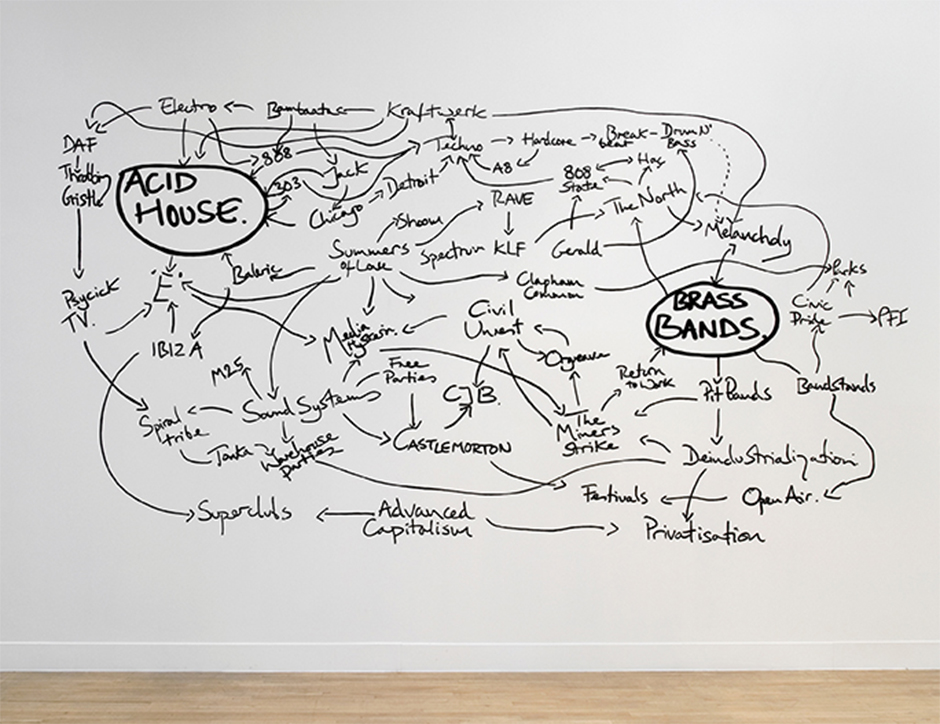 Electro
Bambaataa
Kraftwerk
DAF
Throbbing
Gistle
ACID
HOUSE.
808
303
Jack
Chicago
Detroit
Techno
Hardcore
Break-
beat
Drum N'
Bass
A8
808
State
Hac
RAVE
The North
Melancholy
Shoom
Summers
of Love
Spectrum
KLF
Gerald
Balaric
'E'
Clapham
Common
Parks
BRASS
BANDS.
Civic
Pride
PFI
Psycick
TV.
IBIZA
Media
Hysteria.
Civil
Unrest
Orgreave
M25
Free
Parties
CJB.
Return
to Work
Pit Bands
Bandstands
Spiral
tribe
Sound Systems
CASTLEMORTON
The
Miners
Strike
Tonka
Warehouse
parties
Deindustrialization
Festivals
Open Air.
Superclubs
Advanced
Capitalism
Privatisation